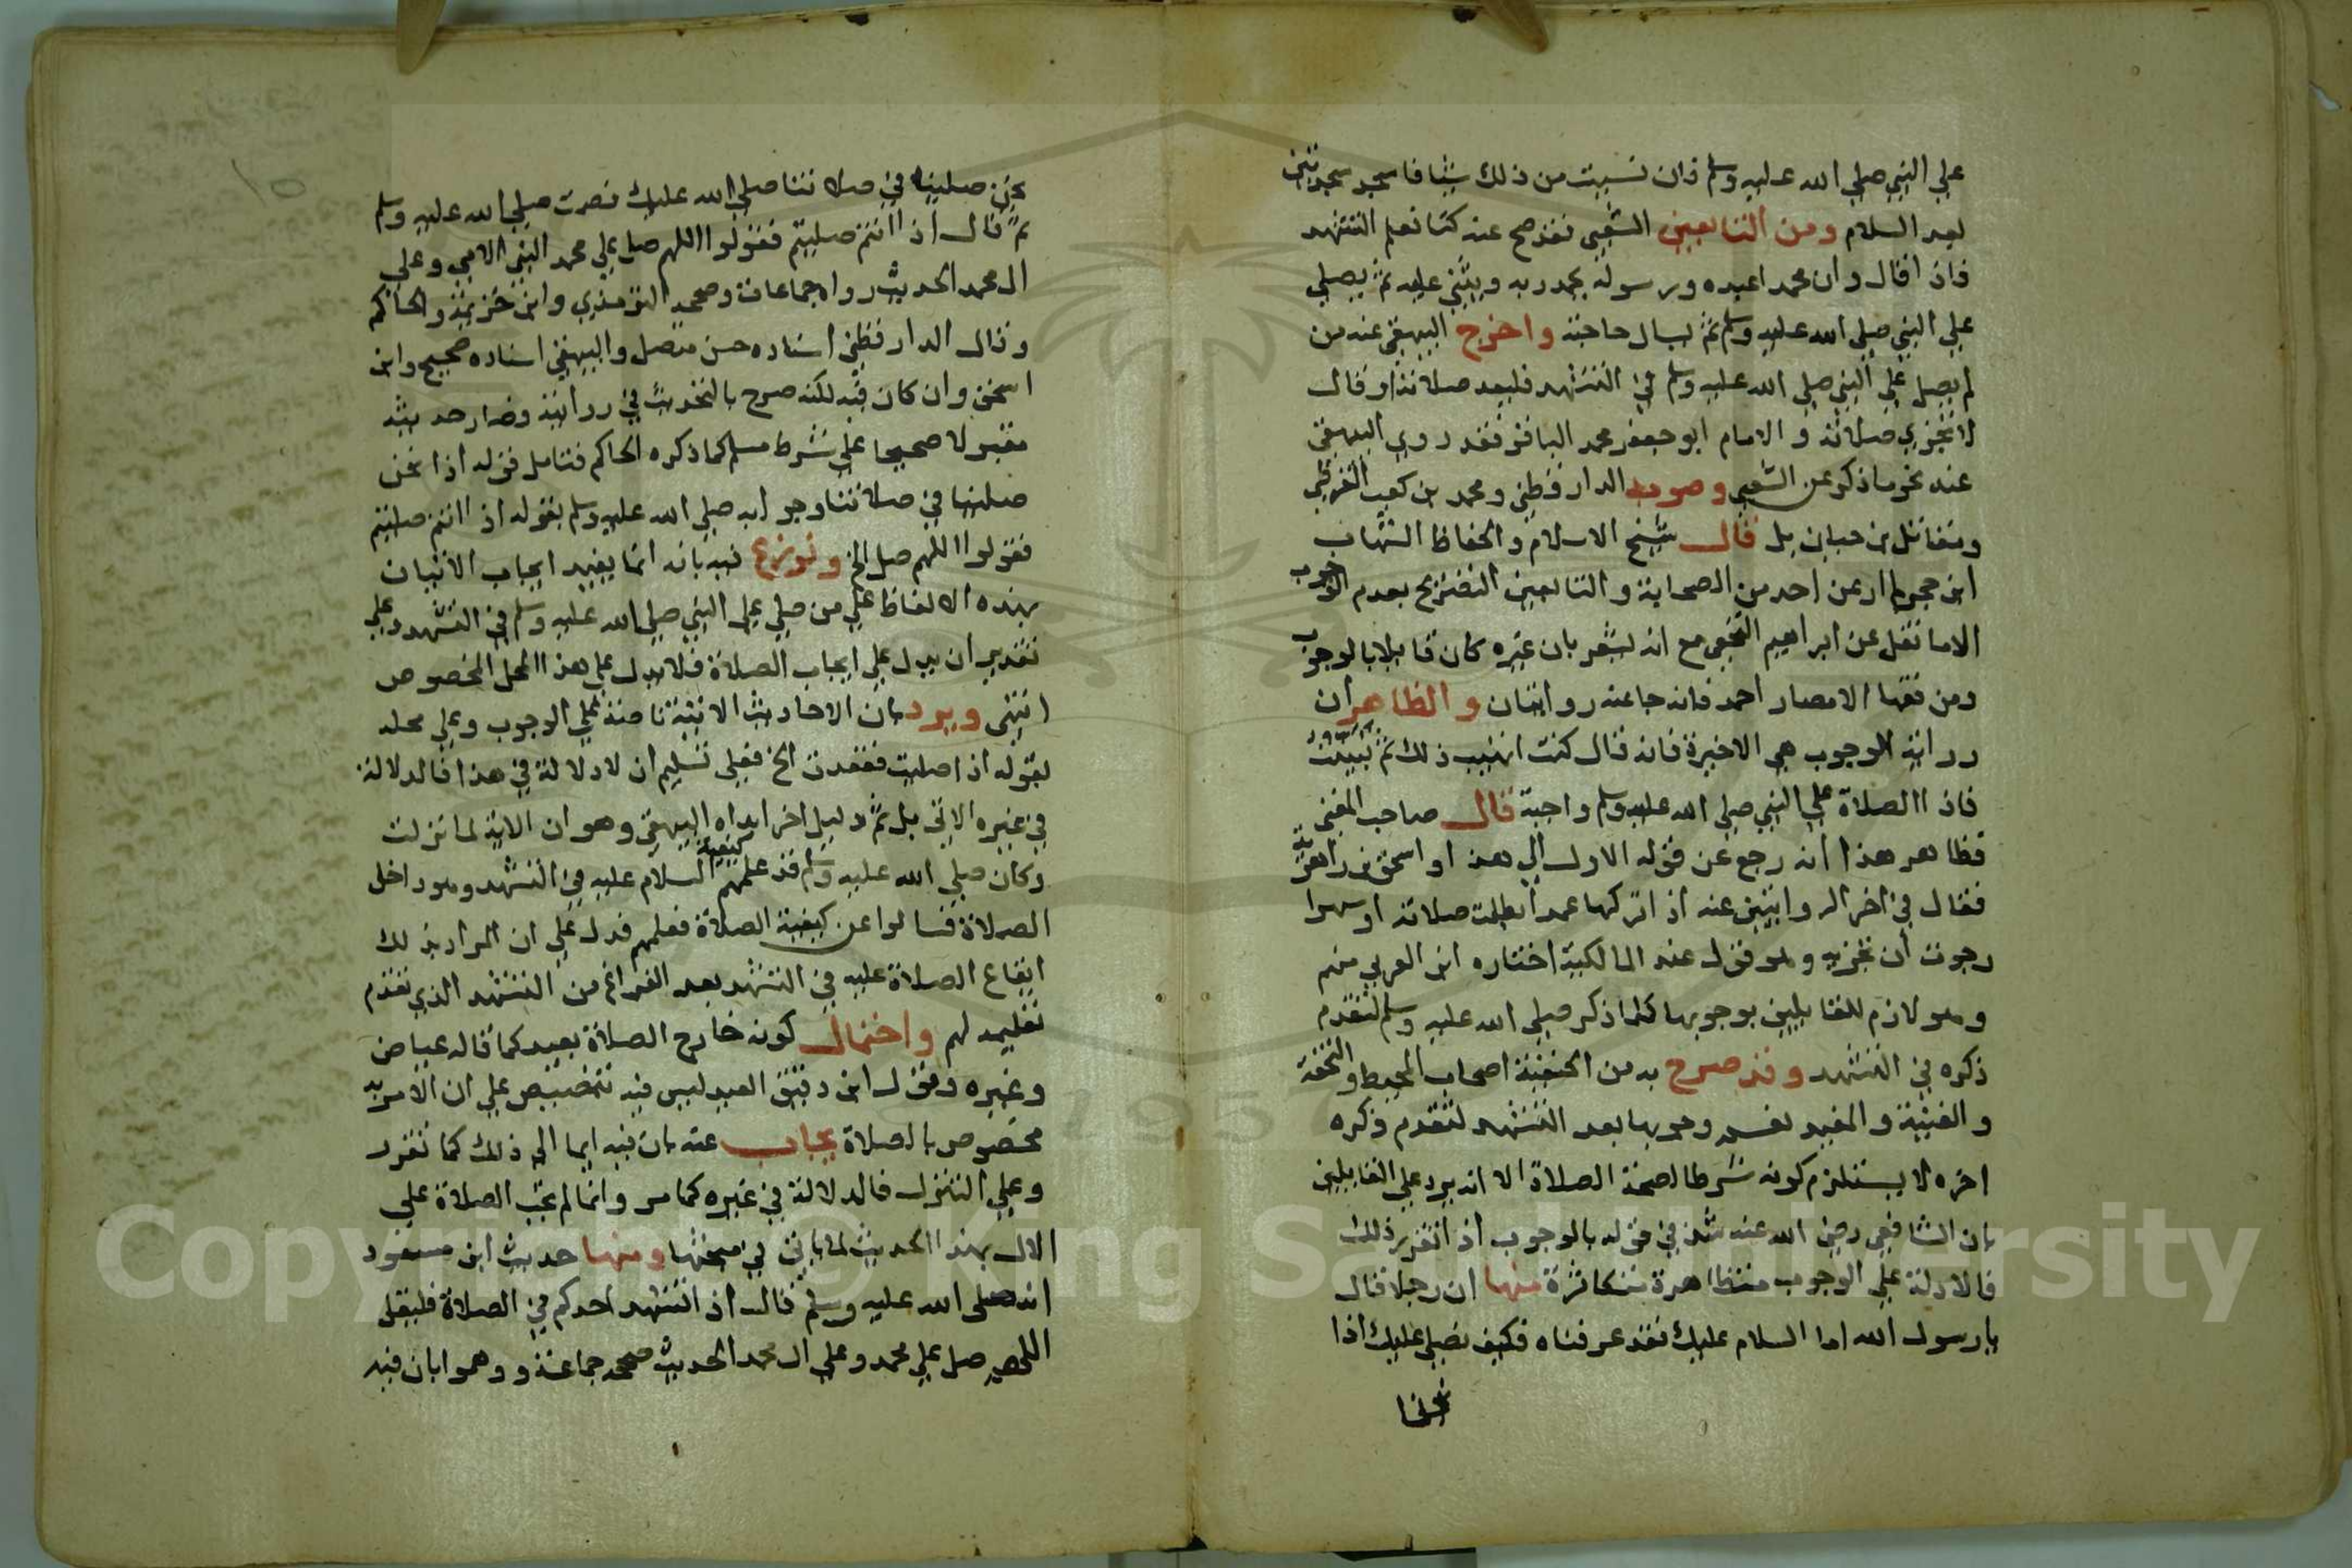 علي النبي صلي الله عليه وسلم فان نسيت من ذلك شيئا فاسجد سجدتين
بعد السلام ومن التابعين الشعبي فقد صح عنه كنا نعلم التشهد
فاذا قال وان محمدا عبده ورسوله يحمد ربه ويثني عليه ثم يصلي
علي النبي صلي الله عليه وسلم ثم يسال حاجته واخرج البيهقي عنه من
لم يصل علي النبي صلي الله عليه وسلم في التشهد فليعد صلاته او قال
لا تجزي صلاته والامام ابو جعفر محمد الباقر فقد روي البيهقي
عنه نحو ما ذكر عن الشعبي وصوبه الدارقطني ومحمد بن كعب القرظي
ومقاتل بن حبان بل قال شيخ الاسلام والحفاظ الشهاب
ابن حجر لم ار عن احد من الصحابة والتابعين التصريح بعدم الوجوب
الا ما نقل عن ابراهيم النخعي مع انه يشعر بان غيره كان قايلا بالوجوب
ومن فقها الامصار احمد فانه جا عنه روايتان والظاهر ان
رواية الوجوب هي الاخيرة فانه قال كنت اتهيب ذلك ثم تبينت
فاذا الصلاة علي النبي صلي الله عليه وسلم واجبة قال صاحب المغني
فظاهر هذا انه رجع عن قوله الاول الي هذا واسحق بن راهويه
فقال في اخر الروايتين عنه اذا تركها عمدا بطلت صلاته او سهوا
رجوت ان تجزيه وهو قول عند المالكية اختاره ابن العربي منهم
وهو لازم للقايلين بوجوبها كلما ذكر صلي الله عليه وسلم لتقدم
ذكره في التشهد وقد صرح به من الحنفية اصحاب المحيط والتحفة
والغنية والمفيد نعم وجوبها بعد التشهد لتقدم ذكره
اخره لا يستلزم كونه شرطا لصحة الصلاة الا انه يرد علي القايلين
بان الشافعي رضي الله عنه شذ في قوله بالوجوب اذا تقرر ذلك
فالادلة علي الوجوب متظاهرة متكاثرة منها ان رجلا قال
يا رسول الله اما السلام عليك فقد عرفناه فكيف نصلي عليك اذا
نحن
١٥
نحن صلينا في صلاتنا صلي الله عليك فصمت صلي الله عليه وسلم
ثم قال اذا انتم صليتم فقولوا اللهم صل علي محمد النبي الامي وعلي
ال محمد الحديث رواه جماعة وصححه الترمذي وابن خزيمة والحاكم
وقال الدارقطني اسناده حسن متصل والبيهقي اسناده صحيح وابن
اسحق وان كان فيه لكنه صرح بالتحديث في رواية وصار حديثه
مقبولا صحيحا علي شرط مسلم كما ذكره الحاكم فتامل قوله اذا نحن
صلينا في صلاتنا وجوابه صلي الله عليه وسلم بقوله اذا انتم صليتم
فقولوا اللهم صل الخ ونوزع فيه بانه انما يفيد ايجاب الاتيان
بهذه الالفاظ علي من صلي علي النبي صلي الله عليه وسلم في التشهد وعلي
تقدير ان يدل علي ايجاب الصلاة فلا يدل علي هذا المحل المخصوص
انتهي ويرد بان الاحاديث الاتية ناصة علي الوجوب وعلي محله
بقوله اذا صليت فقعدت الخ فعلي تسليم ان لا دلالة في هذا فالدلالة
في غيره الاتي بل ثم دليل اخر ابداه البيهقي وهو ان الاية لما نزلت
وكان صلي الله عليه وسلم قد علمهم كيفية السلام عليه في التشهد وهو داخل
الصلاة فسالوا عن كيفية الصلاة فعلمهم فدل علي ان المراد بذلك
ايقاع الصلاة عليه في التشهد بعد الفراغ من التشهد الذي تقدم
تعليمه لهم واحتمال كونه خارج الصلاة بعيد كما قاله عياض
وغيره وقول ابن دقيق العيد ليس فيه تنصيص علي ان الامر به
مخصوص بالصلاة يجاب عنه بان فيه ايما الي ذلك كما تقرر
وعلي التنزل فالدلالة في غيره كما مر وانما لم تجب الصلاة علي
الال بهذا الحديث لما ياتي في مبحثها ومنها حديث ابن مسعود
انه صلى الله عليه وسلم قال اذا تشهد احدكم في الصلاة فليقل
اللهم صل علي محمد وعلي ال محمد الحديث صححه جماعة ووهموا بان فيه